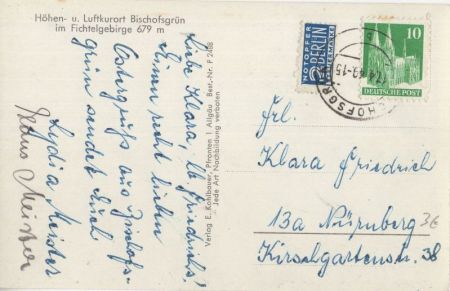 Höhen- u. Luftkurort Bischofsgrün
im Fichtelgebirge 679 m
Liebe Klara, lb. Friedrichs!
Einen recht lieben
Ostergruß aus Bischofs-
grün sendet Euch
Lydia Meister
Klaus Meister
Verlag E. Kohlbauer, Pfronten 1 Allgäu Best.-Nr. P 2488
Jede Art Nachbildung verboten
NOTOPFER
2 BERLIN
STEUERMARKE
10
DEUTSCHE POST
Frl.
Klara Friedrich
13a Nürnberg
36
Kirschgartenstr. 38